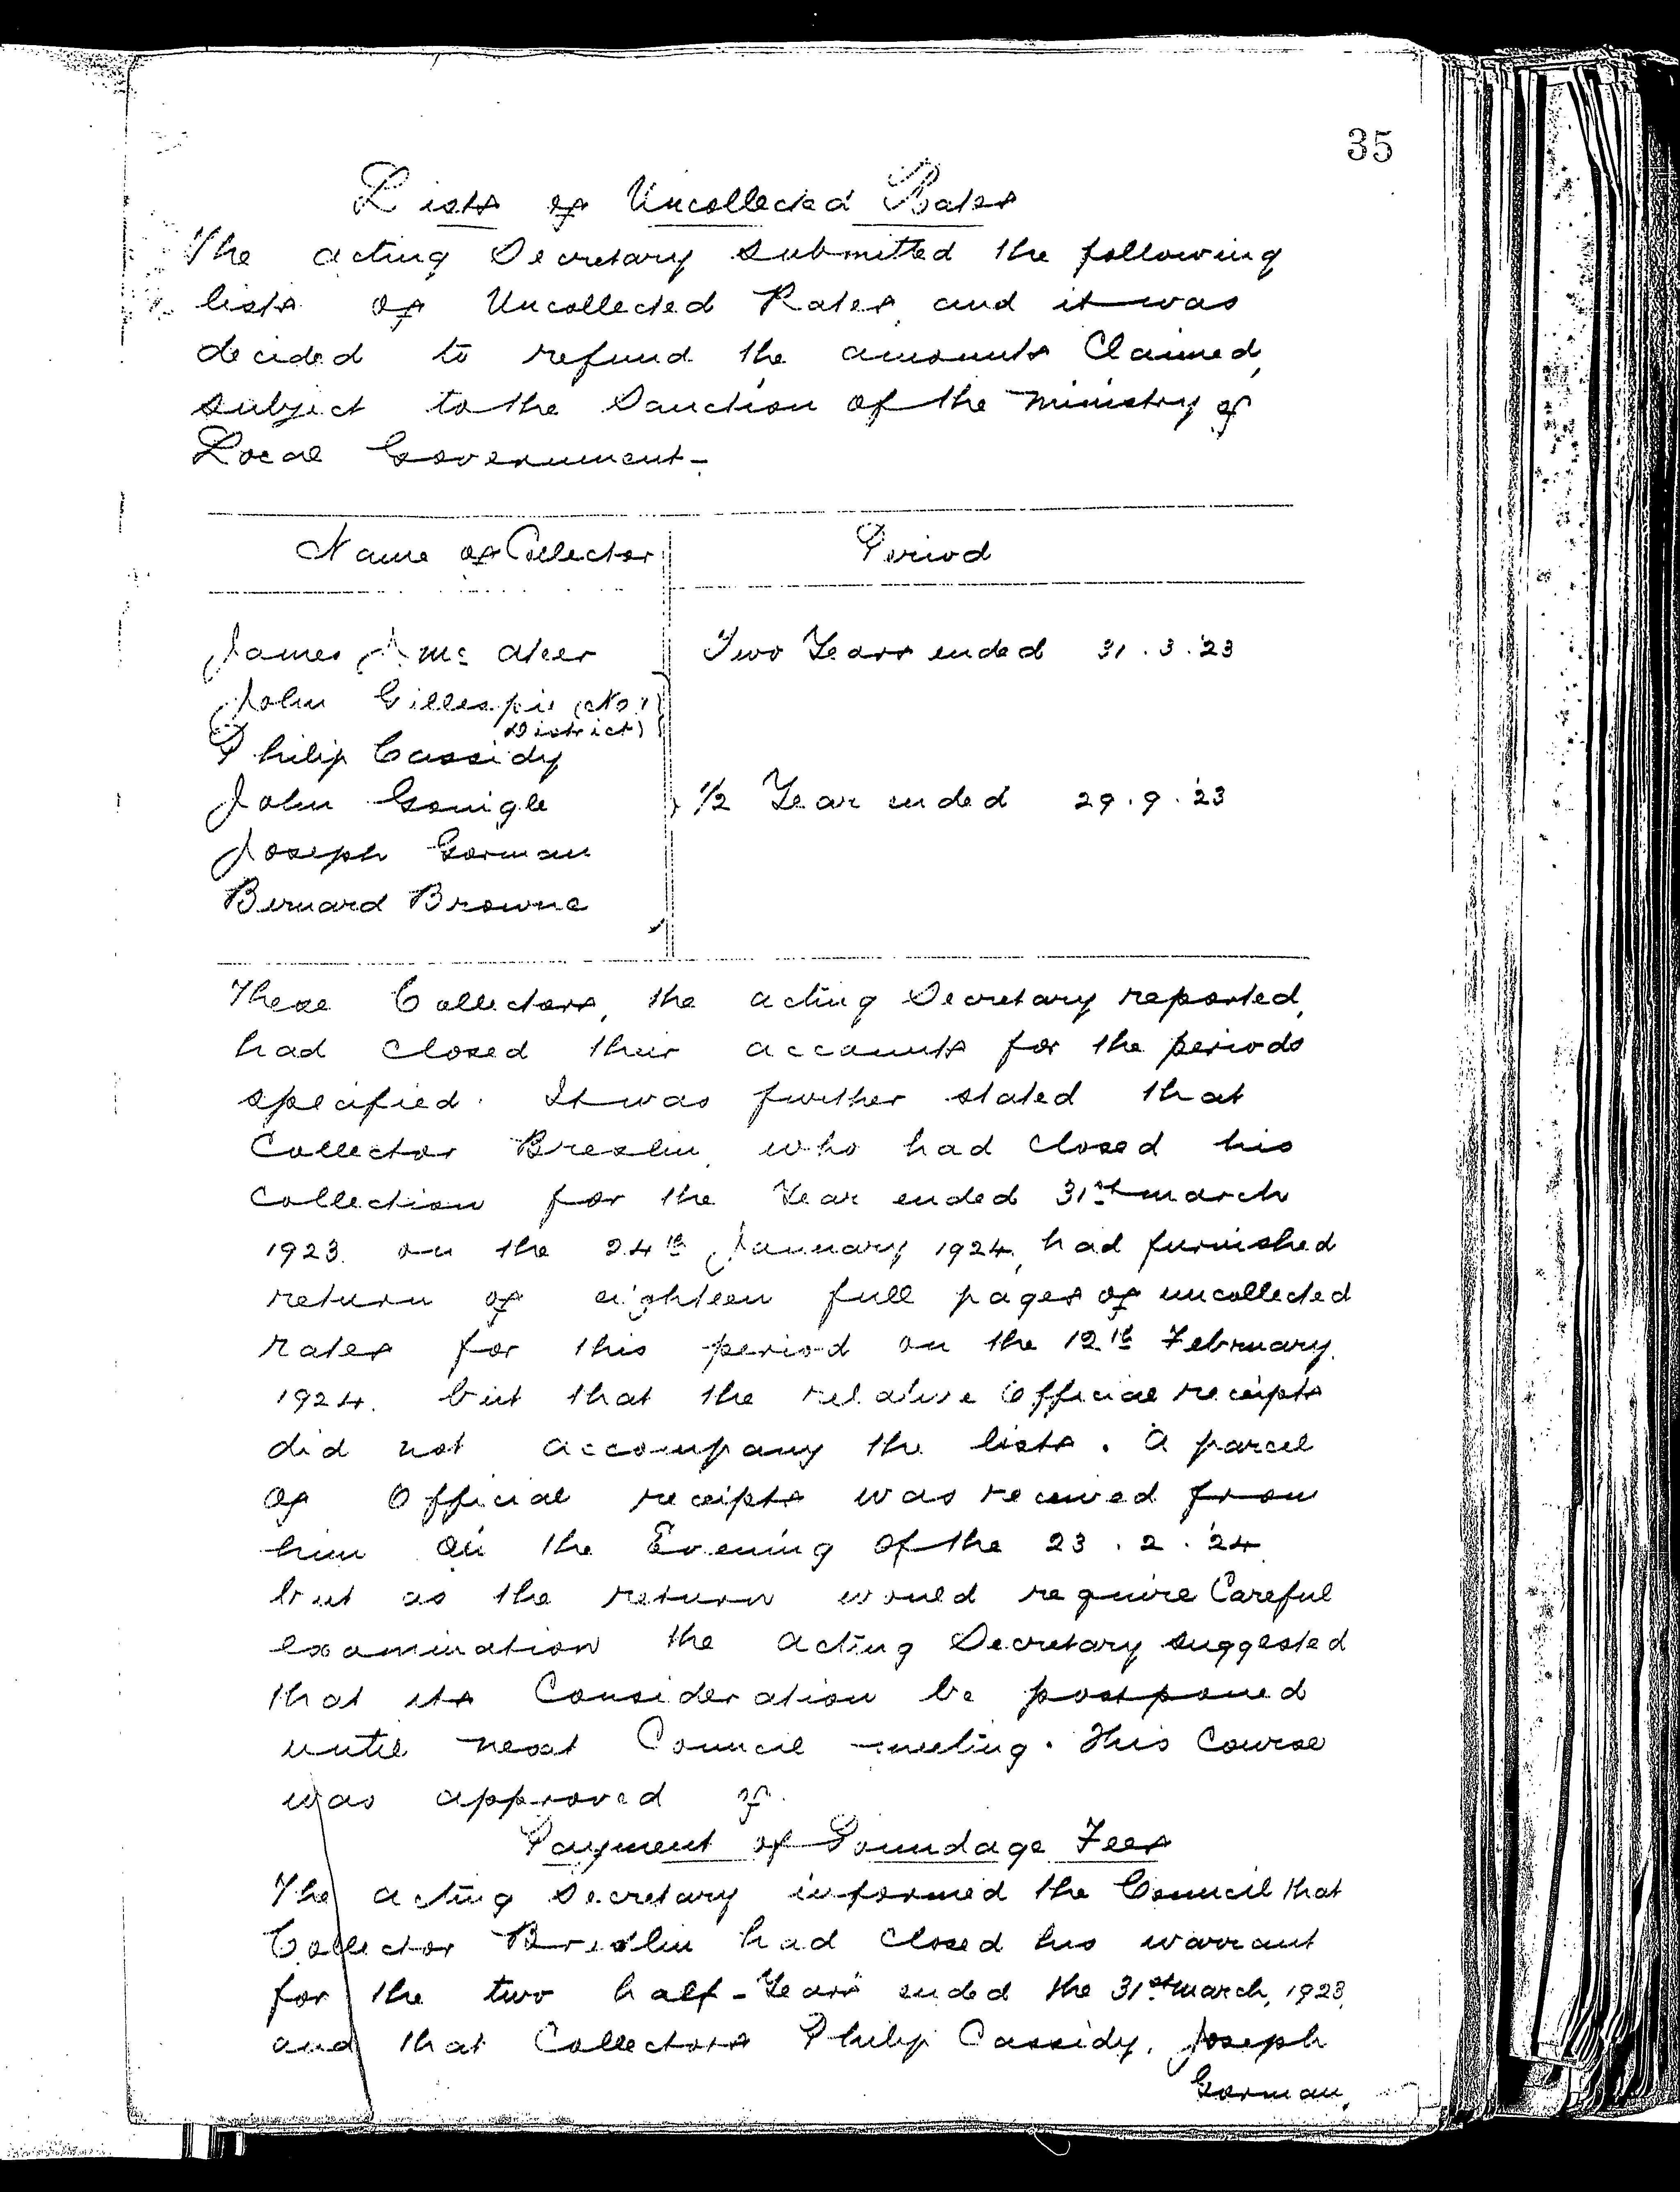 35
Lists of Uncollected Rates
The acting Secretary submitted the following
lists of Uncollected Rates, and it was
decided to refund the amounts Claimed,
subject to the Sanction of the Ministry of
Local Government -
Name of Collector Period
James A Mc Ateer Two Years ended 31 . 3 . '23
John Gillespie (No. 1
District)
Philip Cassidy
John Gonigle 1/2 Year ended 29 . 9 . '23
Joseph Gorman
Bernard Browne
These Collectors, the acting Secretary reported,
had closed their accounts for the periods
specified. It was further stated that
Collector Breslin, who had closed his
Collection for the Year ended 31st March
1923. on the 24th January 1924, had furnished
return of eighteen full pages of uncollected
rates for this period on the 12th February.
1924. but that the relative Official receipts
did not accompany the lists. A parcel
of Official receipts was received from
him on the Evening of the 23 . 2 . '24
but as the return would require Careful
examination the acting Secretary suggested
that its Consideration be postponed
until next Council meeting. This Course
was approved of.
Payment of Poundage Fees
The acting Secretary informed the Council that
Collector Breslin had closed his warrant
for the two half-Years ended the 31st March, 1923,
and that Collectors Philip Cassidy, Joseph
Gorman,